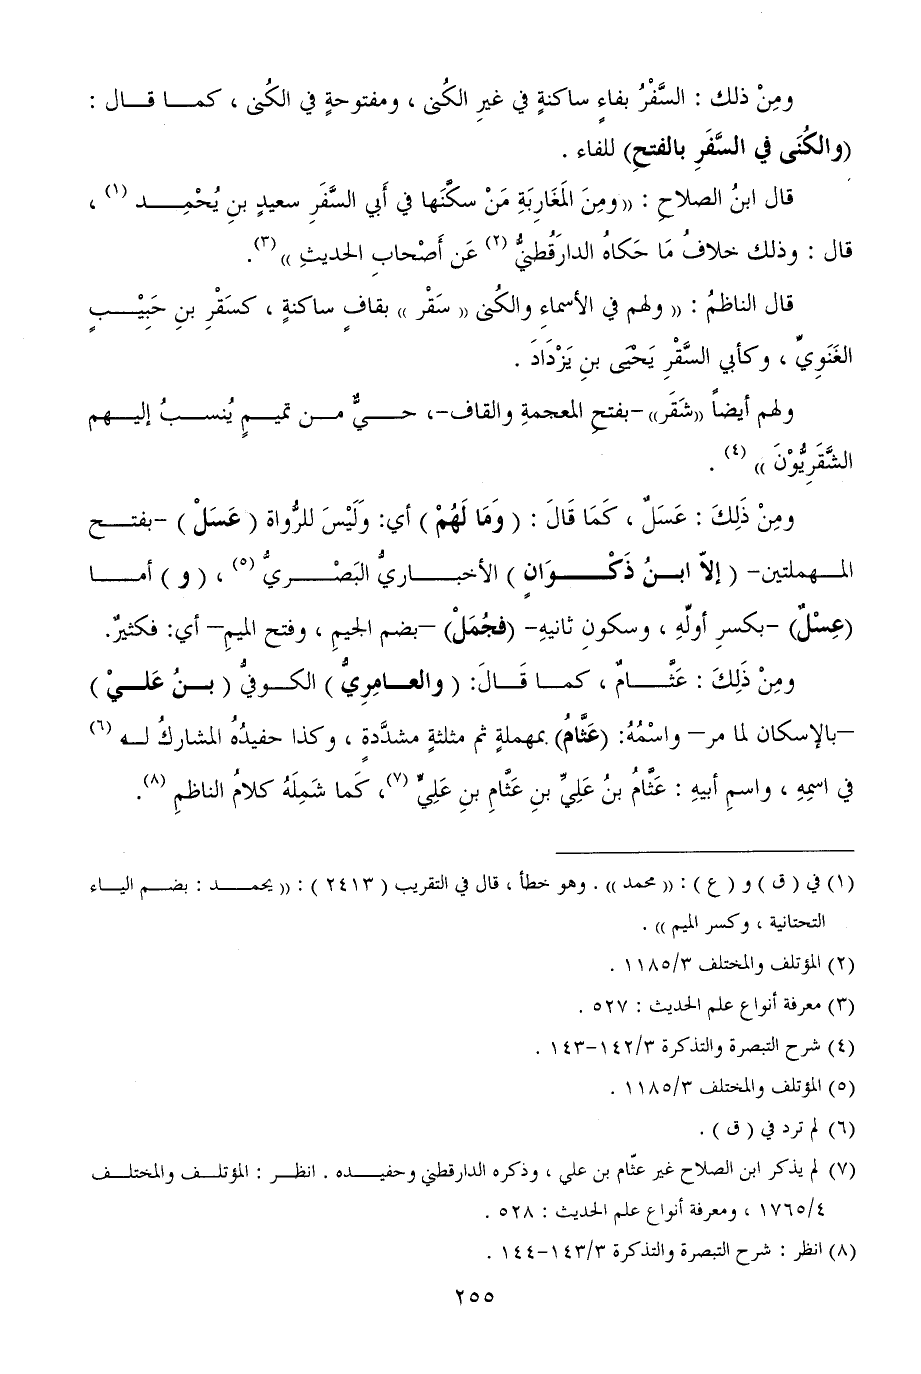 ومِنْ ذلك : السَّفْرُ بفاءٍ ساكنةٍ في غيرِ الكُنى ، ومفتوحةٍ في الكُنى ، كمـا قـال :
(والكُنَى في السَّفَرِ بالفتحِ) للفاء .
قال ابنُ الصلاحِ : (( ومِنَ المَغارِبَةِ مَنْ سكَّنَها في أبي السَّفَرِ سعيدِ بنِ يُحْمِـد (١) ،
قال : وذلك خلافُ مَا حَكاهُ الدارَقُطنيُّ (٢) عَن أَصْحابِ الحديثِ )) (٣).
قال الناظمُ : (( ولهم في الأسماءِ والكُنى (( سَقْر )) بقافٍ ساكنة ، كسَقْرِ بنِ حَبِيْـبٍ
الغَنَويِّ ، وكأبي السَّقْرِ يَحْيَى بنِ يَزْدَادَ .
ولهم أيضاً ((شَقَر)) -بفتحِ المعجمةِ والقاف-، حـيٌّ مـن تميـمٍ يُنسـبُ إليـهم
الشَّقَرِيُّوْنَ )) (٤) .
ومِنْ ذَلِكَ : عَسَلٌ ، كَمَا قَالَ : ( وَمَا لَهُمْ ) أي: وَلَيْسَ للرُّواة ( عَسَلْ ) -بفتـح
المـهملتين- ( إلاّ ابـنُ ذَكْـوَانٍ ) الأخبـاريُّ البَصْـريُّ (٥) ، ( و ) أمـا
(عِسْلٌ) -بكسرِ أولِّهِ ، وسكونِ ثانيهِ- (فجُمَلْ) -بضم الجيمِ ، وفتح الميم- أي: فكثيرٌ.
ومِنْ ذَلِكَ : عَثَّـامٌ ، كمـا قَـالَ: ( والعـامِريُّ ) الكـوفيُّ ( بـنُ عَلـيْ )
-بالإسكان لما مر- واسْمُهُ: (عَثَّامُ) بمهملةٍ ثم مثلثةٍ مشدَّدةٍ ، وكذا حفيدُهُ المشاركُ لـه (٦)
في اسمِهِ ، واسمِ أبيهِ : عَثَّامُ بنُ عَلِيِّ بنِ عَثَّامِ بنِ عَلِيٍّ (٧)، كَما شَمِلَهُ كلامُ الناظمِ (٨).
(١) في ( ق ) و ( ع ) : (( محمد )) . وهو خطأ ، قال في التقريب ( ٢٤١٣ ) : (( يحمـد : بضـم اليـاء
التحتانية ، وكسر الميم )) .
(٢) المؤتلف والمختلف ١١٨٥/٣ .
(٣) معرفة أنواع علم الحديث : ٥٢٧ .
(٤) شرح التبصرة والتذكرة ١٤٢/٣-١٤٣ .
(٥) المؤتلف والمختلف ١١٨٥/٣ .
(٦) لم ترد في ( ق ) .
(٧) لم يذكر ابن الصلاح غير عثّام بن علي ، وذكره الدارقطني وحفيـده . انظـر : المؤتلـف والمختلـف
١٧٦٥/٤ ، ومعرفة أنواع علم الحديث : ٥٢٨ .
(٨) انظر : شرح التبصرة والتذكرة ١٤٣/٣-١٤٤ .
٢٥٥